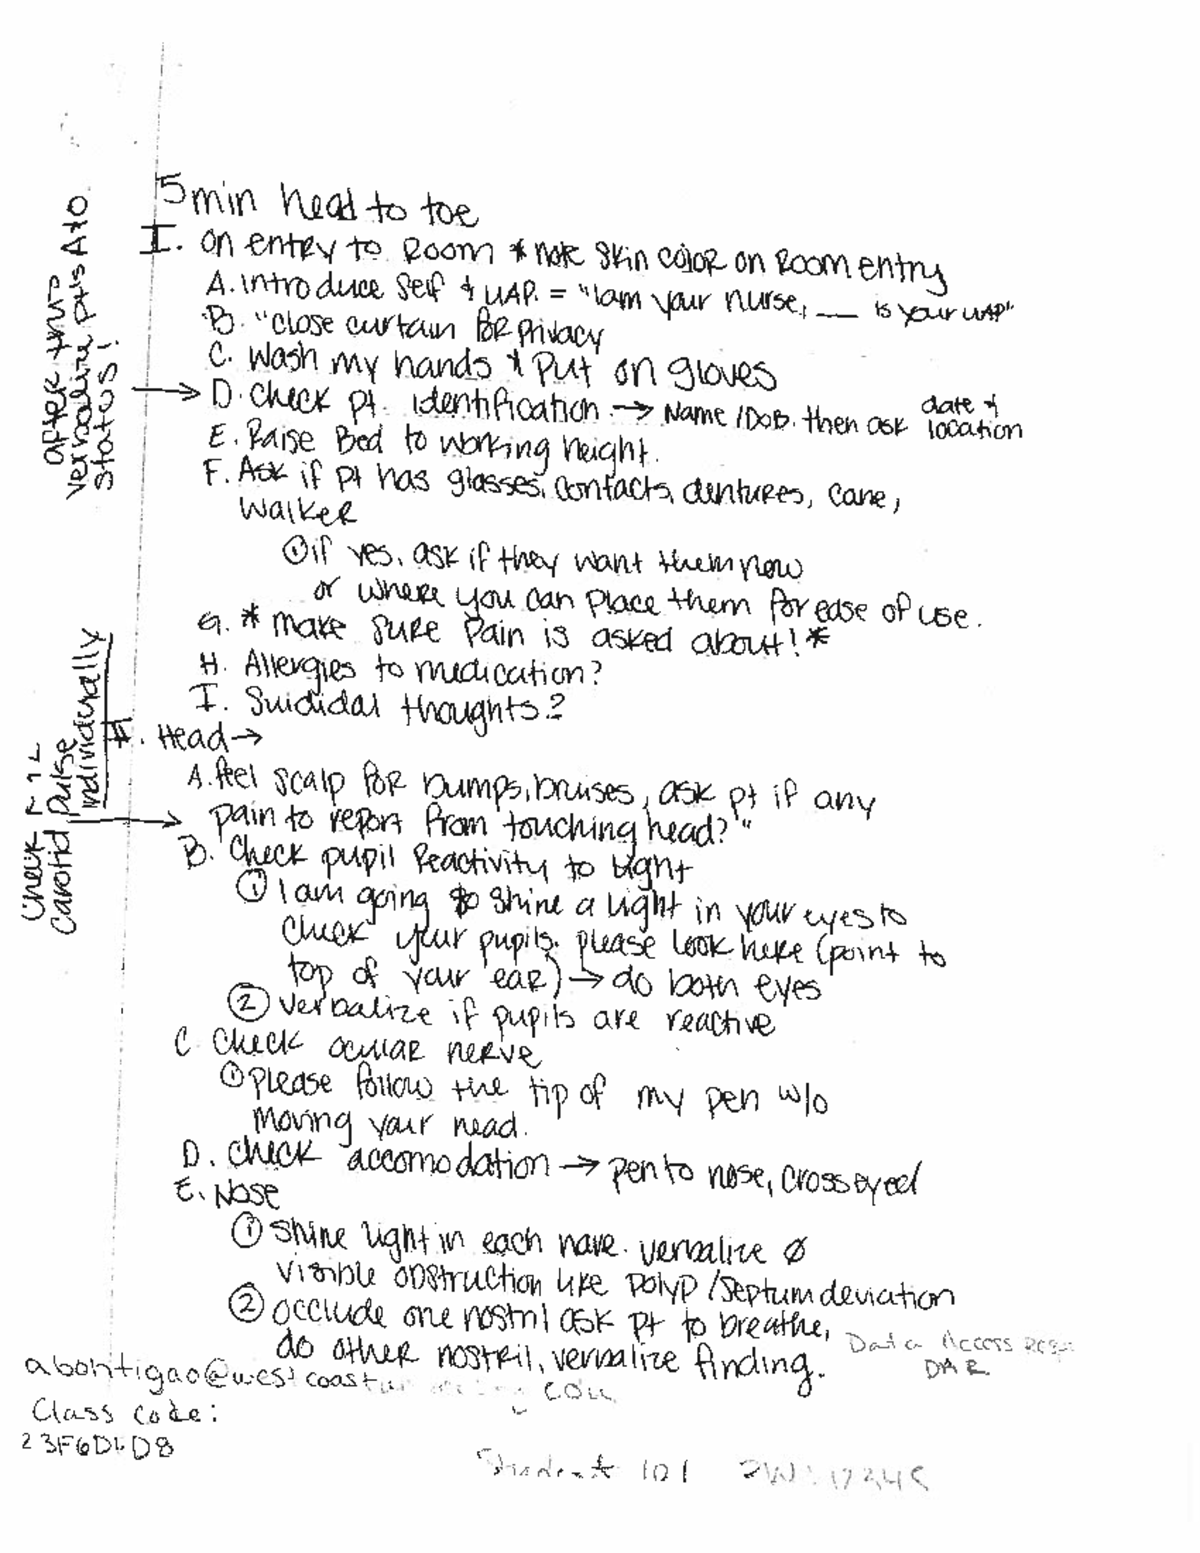 5 min head to toe
I. on entry to Room * note skin color on Room entry
A. introduce self & UAP. = "I am your nurse, __ is your UAP"
B. "close curtain for privacy
C. Wash my hands & Put on gloves
D. Check pt. identification → Name/DOB. then ask date & location
E. Raise Bed to working height.
F. Ask if pt has glasses, contacts, dentures, cane,
walker
① if yes, ask if they want them now
or where you can place them for ease of use.
G. * make sure Pain is asked about! *
H. Allergies to medication?
I. Suididal thoughts?
after this
verbalize pt's A+O
status!
II. Head →
A. feel scalp for bumps, bruises, ask pt if any
pain to report from touching head?"
B. Check pupil Reactivity to light
① I am going to shine a light in your eyes to
check your pupils. please look here (point to
top of your ear) → do both eyes
② verbalize if pupils are reactive
Check R & L
Carotid Pulse
individually
C. Check ocular nerve
① please follow the tip of my pen w/o
moving your head.
D. Check accomodation → pen to nose, cross eyed
E. Nose
① shine light in each nare. verbalize Ø
visible obstruction like polyp/septum deviation
② occlude one nostril ask pt to breathe,
do other nostril, verbalize finding.
Data Access
DAR
Class code:
Student 101